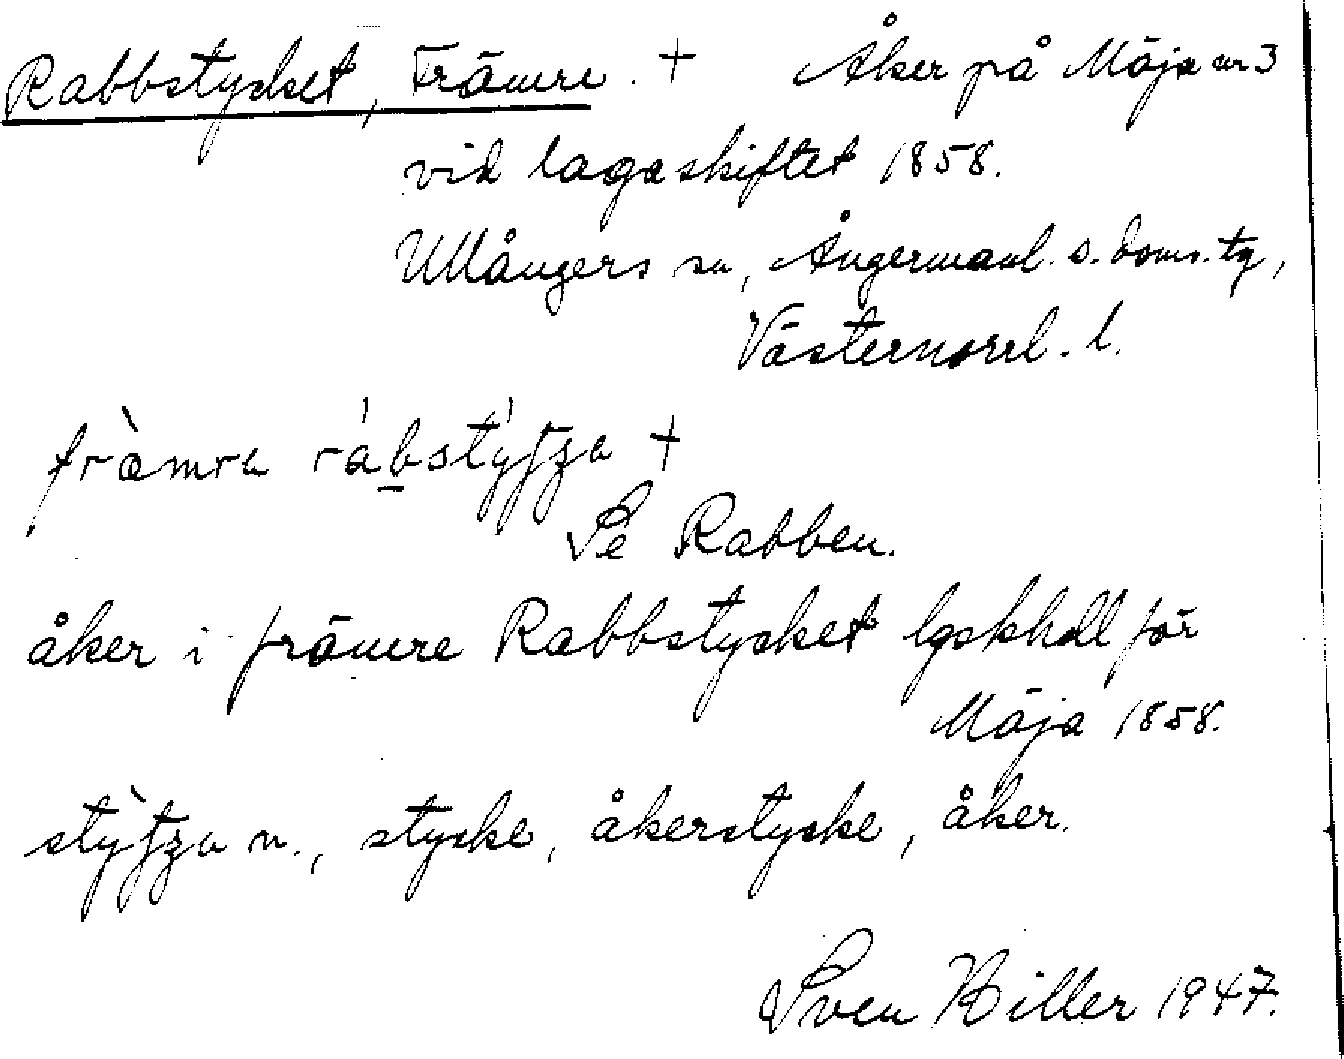 Rabbstycket, Främre. + Åker på Mäja nr 3
vid laga skiftet 1858.
Ullångers sn, Ångermanl. s. doms. tg,
Västernorrl. l.
fràmra rábstýʃʒa +
Se Rabben.
åker i främre Rabbstycket lgskhdl för
Mäja 1858.
stỳʃʒa n., stycke, åkerstycke, åker.
Sven Hiller 1947.